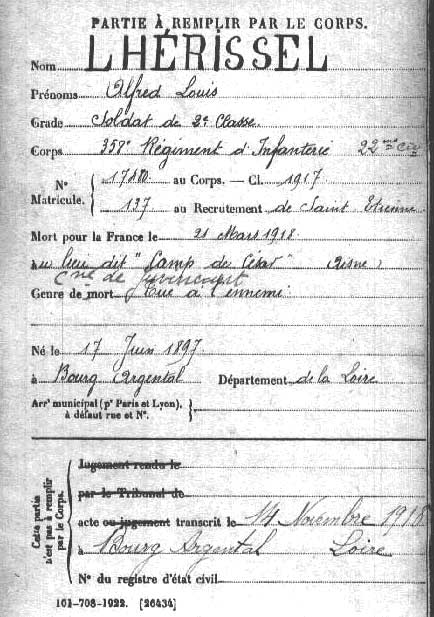 PARTIE À REMPLIR PAR LE CORPS.
Nom LHÉRISSEL
Prénoms Alfred Louis
Grade Soldat de 2e Classe
Corps 358e Régiment d'Infanterie 22me Cie
N° Matricule. 17480 au Corps. — Cl. 1917
137 au Recrutement de Saint Etienne
Mort pour la France le 21 Mars 1918
au lieu dit "Camp de César" (Aisne)
Cne de Juvincourt
Genre de mort Tué à l'ennemi
Né le 17 Juin 1897
à Bourg Argental Département de la Loire
Arrt municipal (pr Paris et Lyon), à défaut rue et N°.
Cette partie n'est pas à remplir par le Corps.
Jugement rendu le
par le Tribunal de
acte ou jugement transcrit le 14 Novembre 1918
à Bourg Argental Loire
N° du registre d'état civil
101-708-1922. [26434]